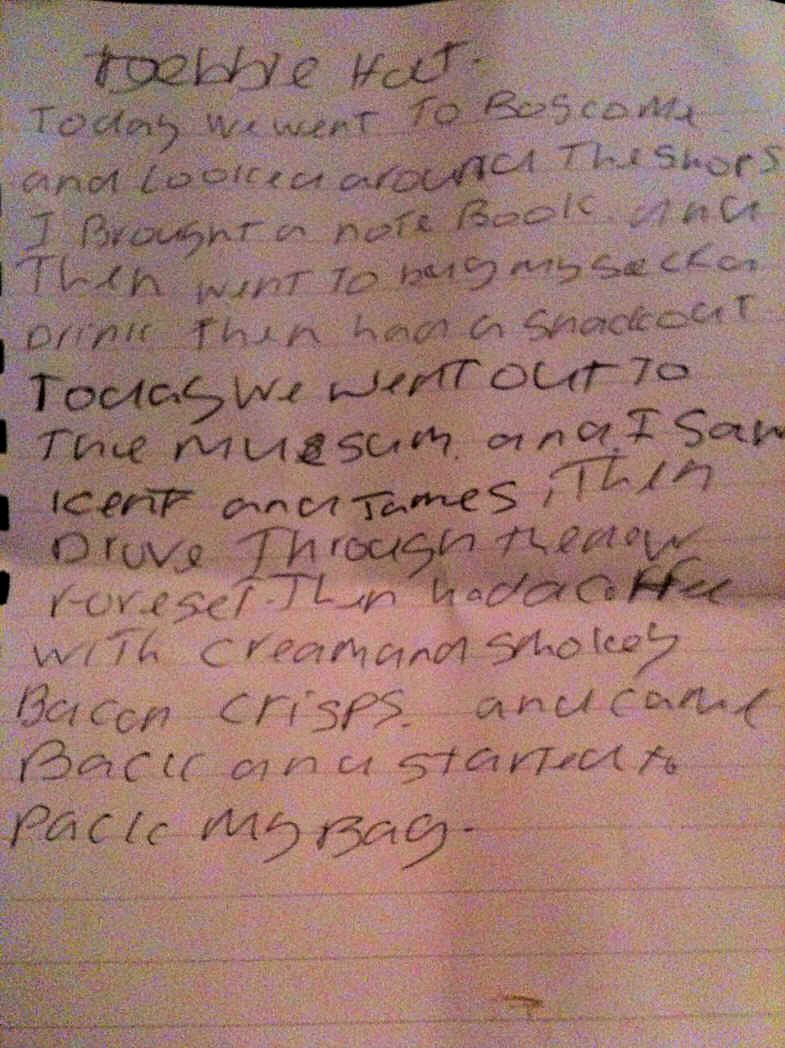 Debbie Hat.
Today we went To Boscome
and Looked around The shops
I Brought a note Book. and
Then went To buy my
Drink Then had a snack out
Today we went out To
The muesum. and I Saw
Kent and James, Then
Drove Through the new
Foreset. Then had a Coffee
with cream and smokey
Bacon crisps. and came
Back and started to
Pack My Bag.